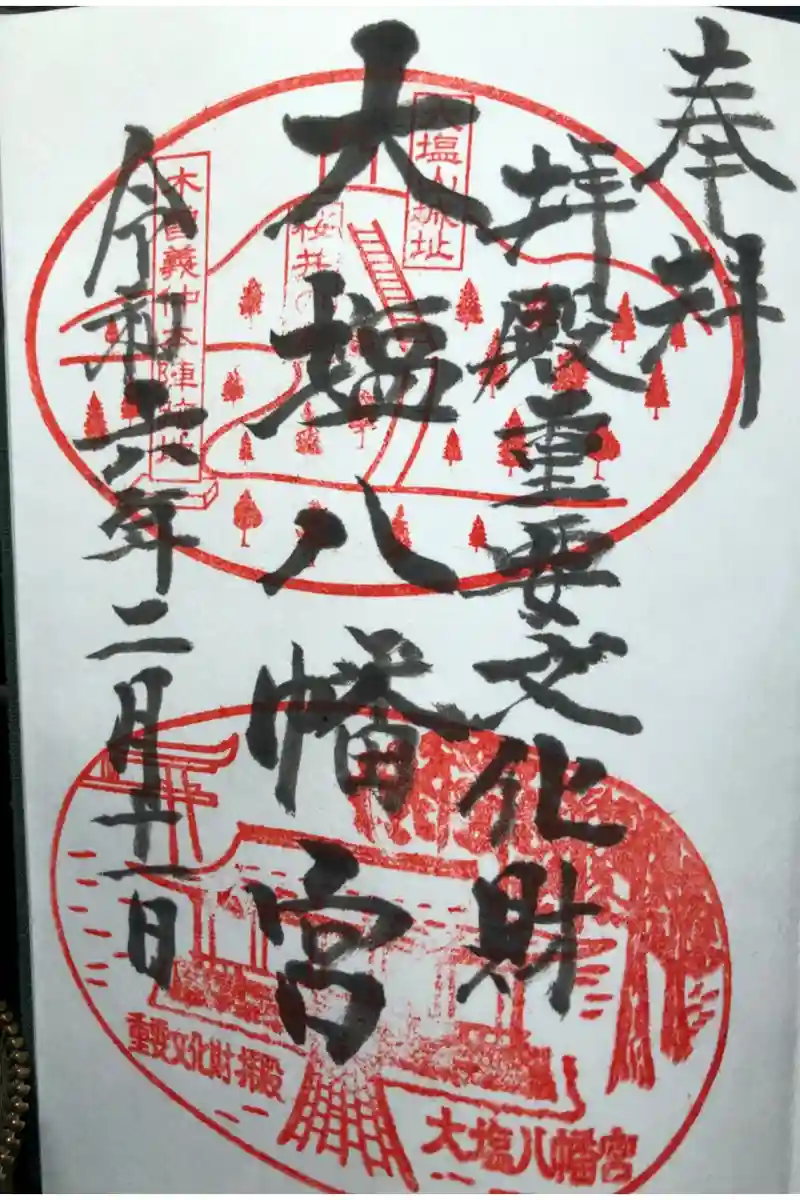 奉拝
拝殿重要文化財
大塩八幡宮
令和六年二月十一日
大塩山城址
桜井の
木曽義仲本陣
重要文化財拝殿
大塩八幡宮